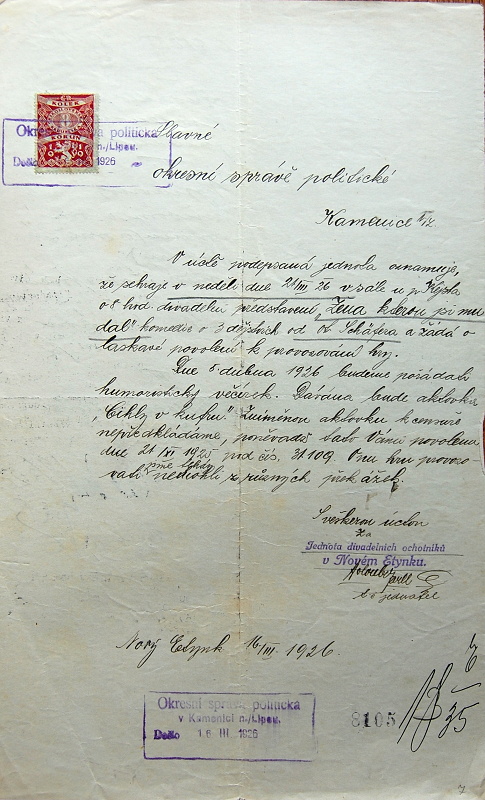 KOLEK
KORUN
1919
Okresní správa politická
n./Lipou.
Došlo 1926
Slavné
okresní správě politické
Kamenice n/L
V úctě podepsaná jednota oznamuje,
že sehraje v neděli dne 21/III 26 v sále u p. Vejsla
o 8 hod. divadelní představení „Žena kterou
dal" komedie o 3 dějstvích od Schäfera a žádá o
laskavé povolení k provozování hry.
Dne 5 dubna 1926 budeme pořádati
humoristický věčírek. Dávána bude aktovka
„Cikly v kufru" Zmíněnou aktovku k censuře
nepředkládáme, poněvadž byla Vámi povolena
dne 21/XI 1925 pod čís. 31109. Onu hru provozo
vati jsme tehdy nemohli z různých překážek.
S veškerou úctou
za
Jednota divadelních ochotníků
v Novém Etynku.
t.č. jednatel
Nový Etynk 16/III. 1926.
Okresní správa politická
v Kamenici n./Lipou.
Došlo 16 III 1926
8105
6
35
7